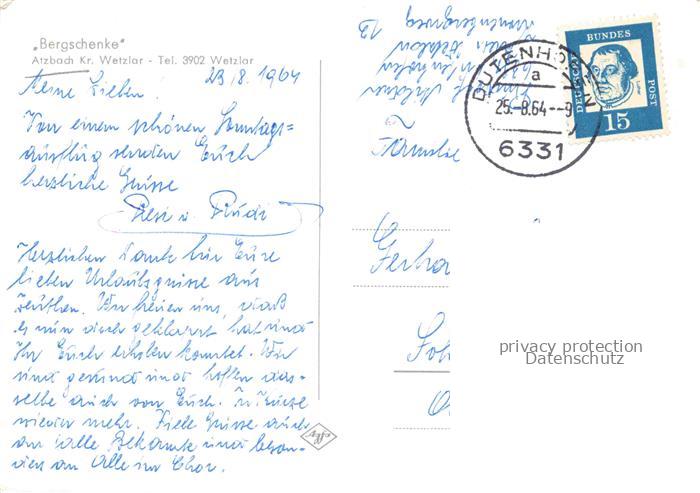 „Bergschenke"
Atzbach Kr. Wetzlar - Tel. 3902 Wetzlar
23.8.1964
Meine Lieben!
Von einem schönen Sonntags=
ausflug senden Euch
herzliche Grüsse
Resi u. Rudi
Herzlichen Dank für Eure
lieben Urlaubsgrüsse aus
Wir freuen uns, daß
es nun doch geklappt hat und
Ihr Euch erholen konntet. Wir
sind gesund und hoffen das-
selbe auch von Euch. In Kürze
wieder mehr. Viele Grüsse auch
an alle Bekannte und beson-
ders an Alle im Chor.
Agfa
13
DEUTSCHE BUNDESPOST
15
DUTENHOFEN
a
25.-8.64--9
6331
Familie
Gerha
privacy protection
Datenschutz